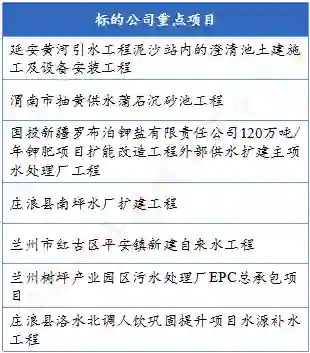 标的公司重点项目
延安黄河引水工程泥沙站内的澄清池土建施
工及设备安装工程
渭南市抽黄供水蒲石沉砂池工程
国投新疆罗布泊钾盐有限责任公司120万吨/
年钾肥项目扩能改造工程外部供水扩建主项
水处理厂工程
庄浪县南坪水厂扩建工程
兰州市红古区平安镇新建自来水工程
兰州树坪产业园区污水处理厂EPC总承包项
目
庄浪县洛水北调人饮巩固提升项目水源补水
工程